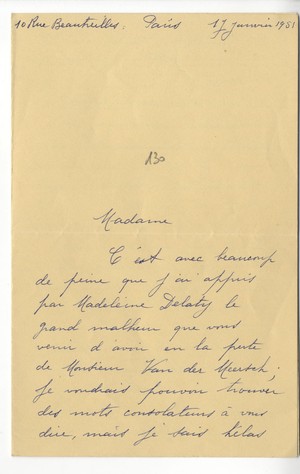 10 Rue Beautreillis, Paris 17 janvier 1951
130
Madame
C'est avec beaucoup
de peine que j'ai appris
par Madeleine Delaty le
grand malheur que vous
venir d'avoir en la perte
de Monsieur Van der Meersch ;
je voudrais pouvoir trouver
des mots consolateurs à vous
dire, mais je sais hélas